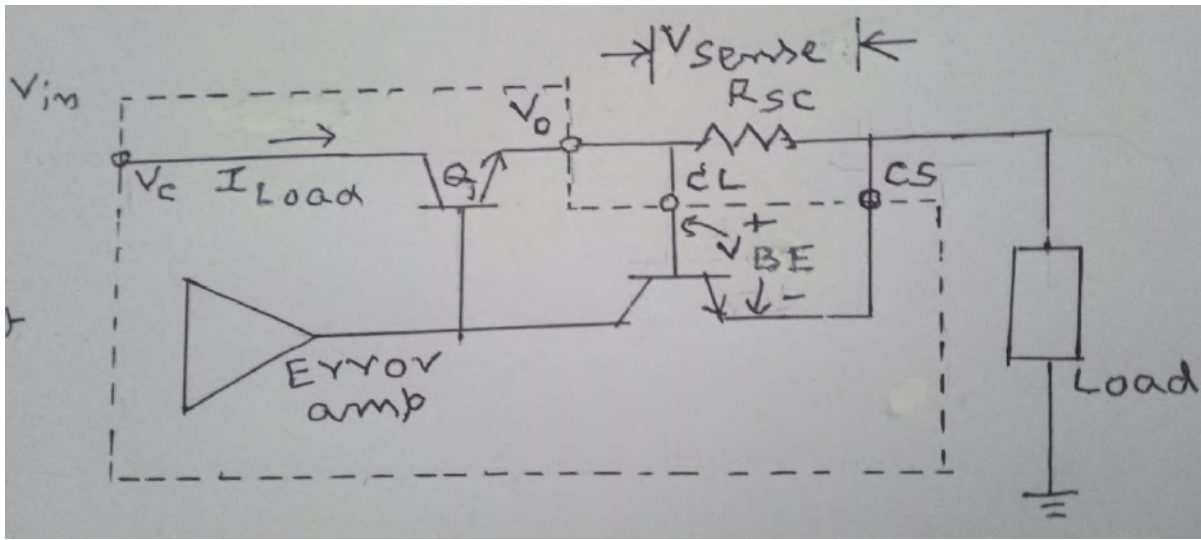 Vsense
Vin
RSC
Vo
Vc
ILoad
Q1
CL
CS
+
VBE
-
Error
amp
Load